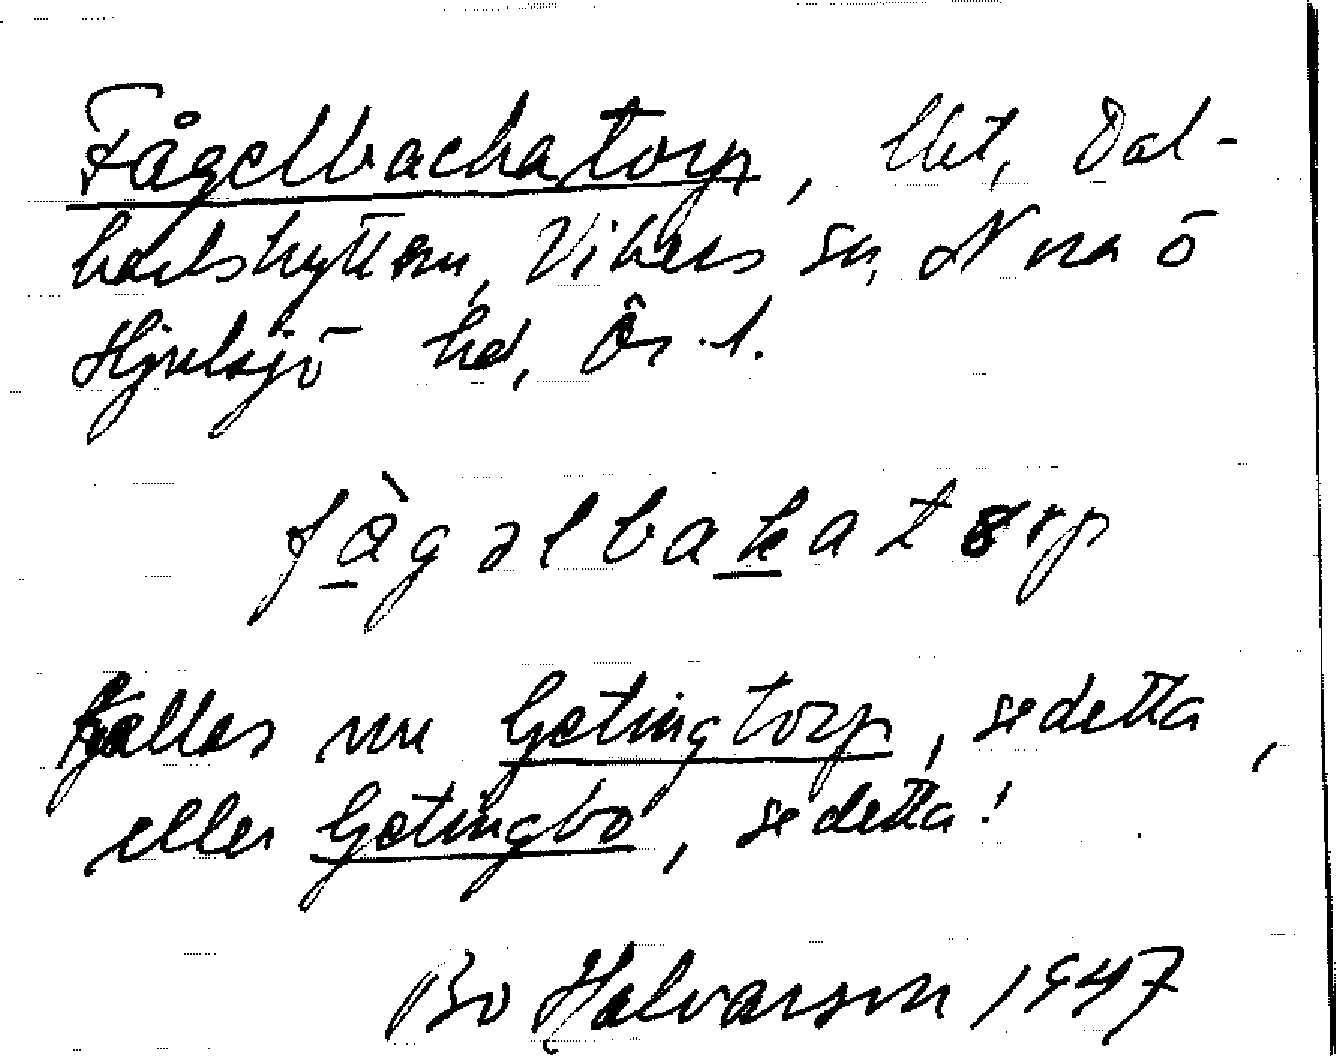 Fågelbackatorp, lht, Dal-
karlshyttan, Vikers sn, Nora o
Hjulsjö hd, Ör. l.
fågəlbakatorp
Kallas nu Getingtorp, se detta,
eller Getingbo, se detta!
Bo Halvarson 1947